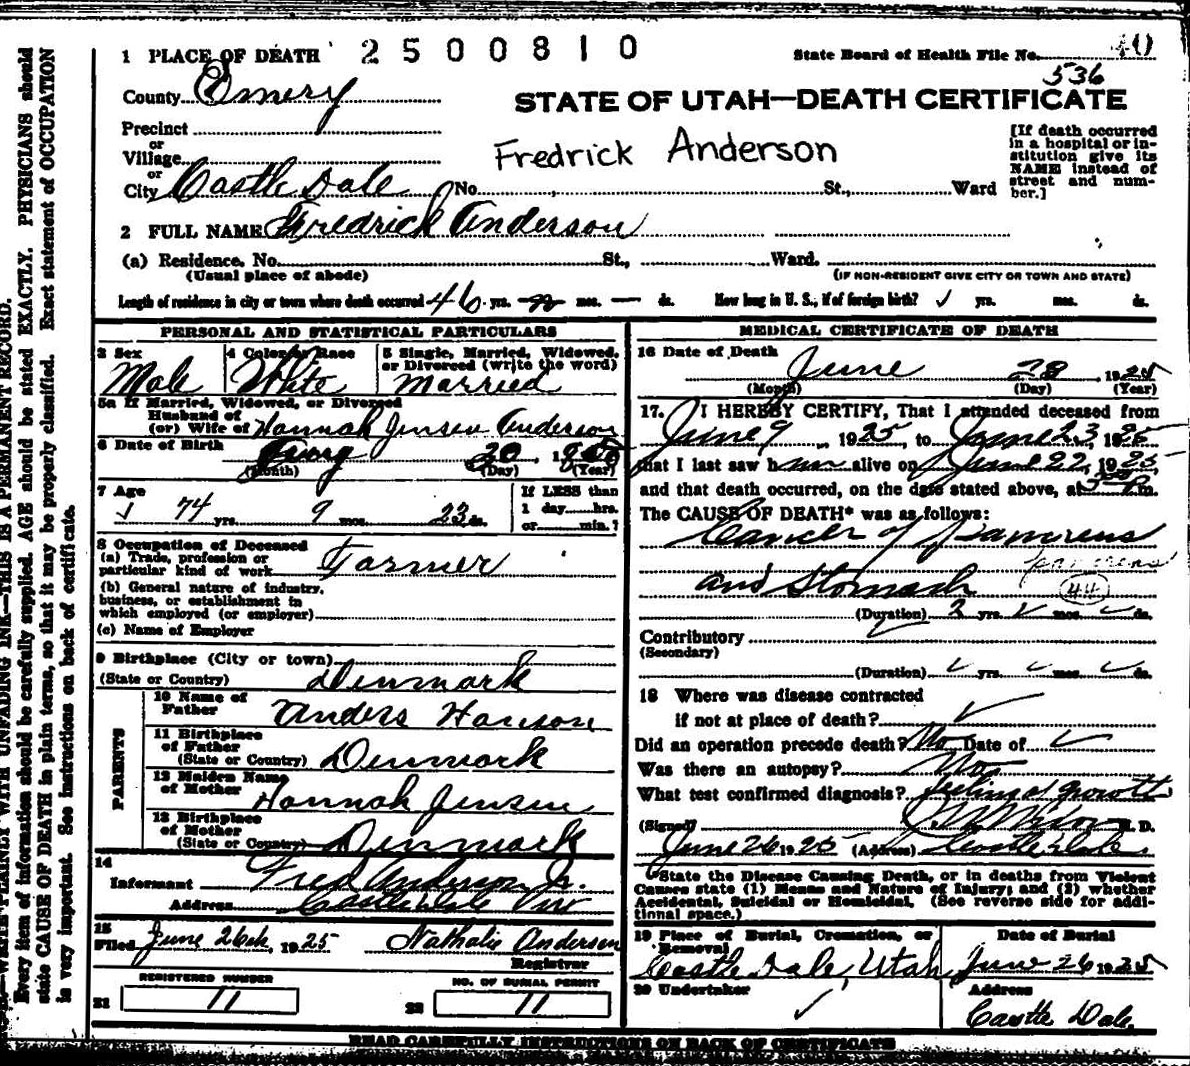 1 PLACE OF DEATH 2500810 State Board of Health File No. 40
536
County Emery
STATE OF UTAH—DEATH CERTIFICATE
Precinct
or
Village
or
City Castle Dale No. St., Ward
Fredrick Anderson
[If death occurred
in a hospital or in-
stitution give its
NAME instead of
street and num-
ber.]
2 FULL NAME Fredrick Anderson
(a) Residence. No. St., Ward.
(Usual place of abode) (IF NON-RESIDENT GIVE CITY OR TOWN AND STATE)
Length of residence in city or town where death occurred 46 yrs. mos. — ds. How long in U. S., if of foreign birth? ✓ yrs. mos. ds.
PERSONAL AND STATISTICAL PARTICULARS
3 Sex 4 Color or Race 5 Single, Married, Widowed,
or Divorced (write the word)
Male White Married
5a If Married, Widowed, or Divorced
Husband of
(or) Wife of Hannah Jensen Anderson
6 Date of Birth
(Month) (Day) (Year)
7 Age If LESS than
74 yrs. 9 mos. 23 ds. 1 day hrs.
or min.?
8 Occupation of Deceased
(a) Trade, profession or
particular kind of work Farmer
(b) General nature of industry,
business, or establishment in
which employed (or employer)
(c) Name of Employer
9 Birthplace (City or town)
(State or Country) Denmark
PARENTS
10 Name of
Father Anders Hanson
11 Birthplace
of Father
(State or Country) Denmark
12 Maiden Name
of Mother Hannah Jensen
13 Birthplace
of Mother
(State or Country) Denmark
14
Informant Fred Anderson Jr.
Address Castle Dale
15
Filed June 26th, 1925 Nathalie Anderson
Registrar
REGISTERED NUMBER NO. OF BURIAL PERMIT
21 11 22 11
MEDICAL CERTIFICATE OF DEATH
16 Date of Death
June 23 1925
(Month) (Day) (Year)
17. I HEREBY CERTIFY, That I attended deceased from
June 9, 1925, to June 23, 1925
that I last saw him alive on June 22, 1925,
and that death occurred, on the date stated above, at 5 P.m.
The CAUSE OF DEATH* was as follows:
Cancer of pancreas
pancreas
and Stomach 44
(Duration) 2 yrs. ✓ mos. ✓ ds.
Contributory
(Secondary)
(Duration) ✓ yrs. ✓ mos. ✓ ds.
18 Where was disease contracted
if not at place of death? ✓
Did an operation precede death? No Date of ✓
Was there an autopsy? No
What test confirmed diagnosis? feeling of growth
(Signed) M. D.
June 26 1925 (Address) Castle Dale.
*State the Disease Causing Death, or in deaths from Violent
Causes state (1) Means and Nature of Injury; and (2) whether
Accidental, Suicidal or Homicidal. (See reverse side for addi-
tional space.)
19 Place of Burial, Cremation, or
Removal Date of Burial
Castle Dale, Utah June 26 1925
20 Undertaker Address
✓ Castle Dale.
READ CAREFULLY INSTRUCTIONS ON BACK OF CERTIFICATE
WRITE PLAINLY WITH UNFADING INK—THIS IS A PERMANENT RECORD.
Every item of information should be carefully supplied. AGE should be stated EXACTLY. PHYSICIANS should
state CAUSE OF DEATH in plain terms, so that it may be properly classified. Exact statement of OCCUPATION
is very important. See instructions on back of certificate.